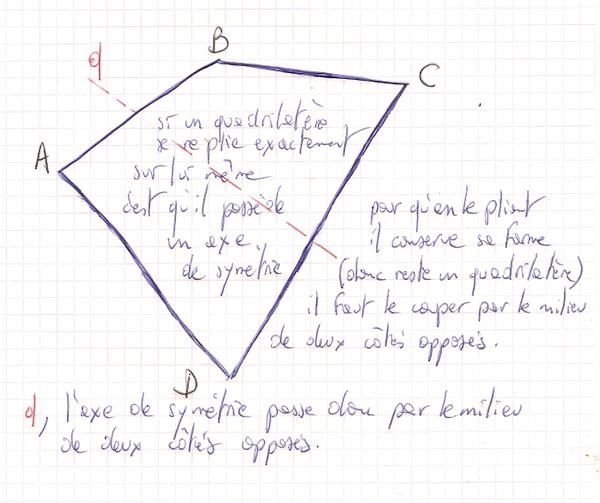 B
d
C
si un quadrilatère
se replie exactement
A
sur lui même
c'est qu'il possède
un axe
de symétrie
pour qu'en le pliant
il conserve sa forme
(donc reste un quadrilatère)
il faut le couper par le milieu
de deux côtés opposés.
D
d, l'axe de symétrie passe donc par le milieu
de deux côtés opposés.